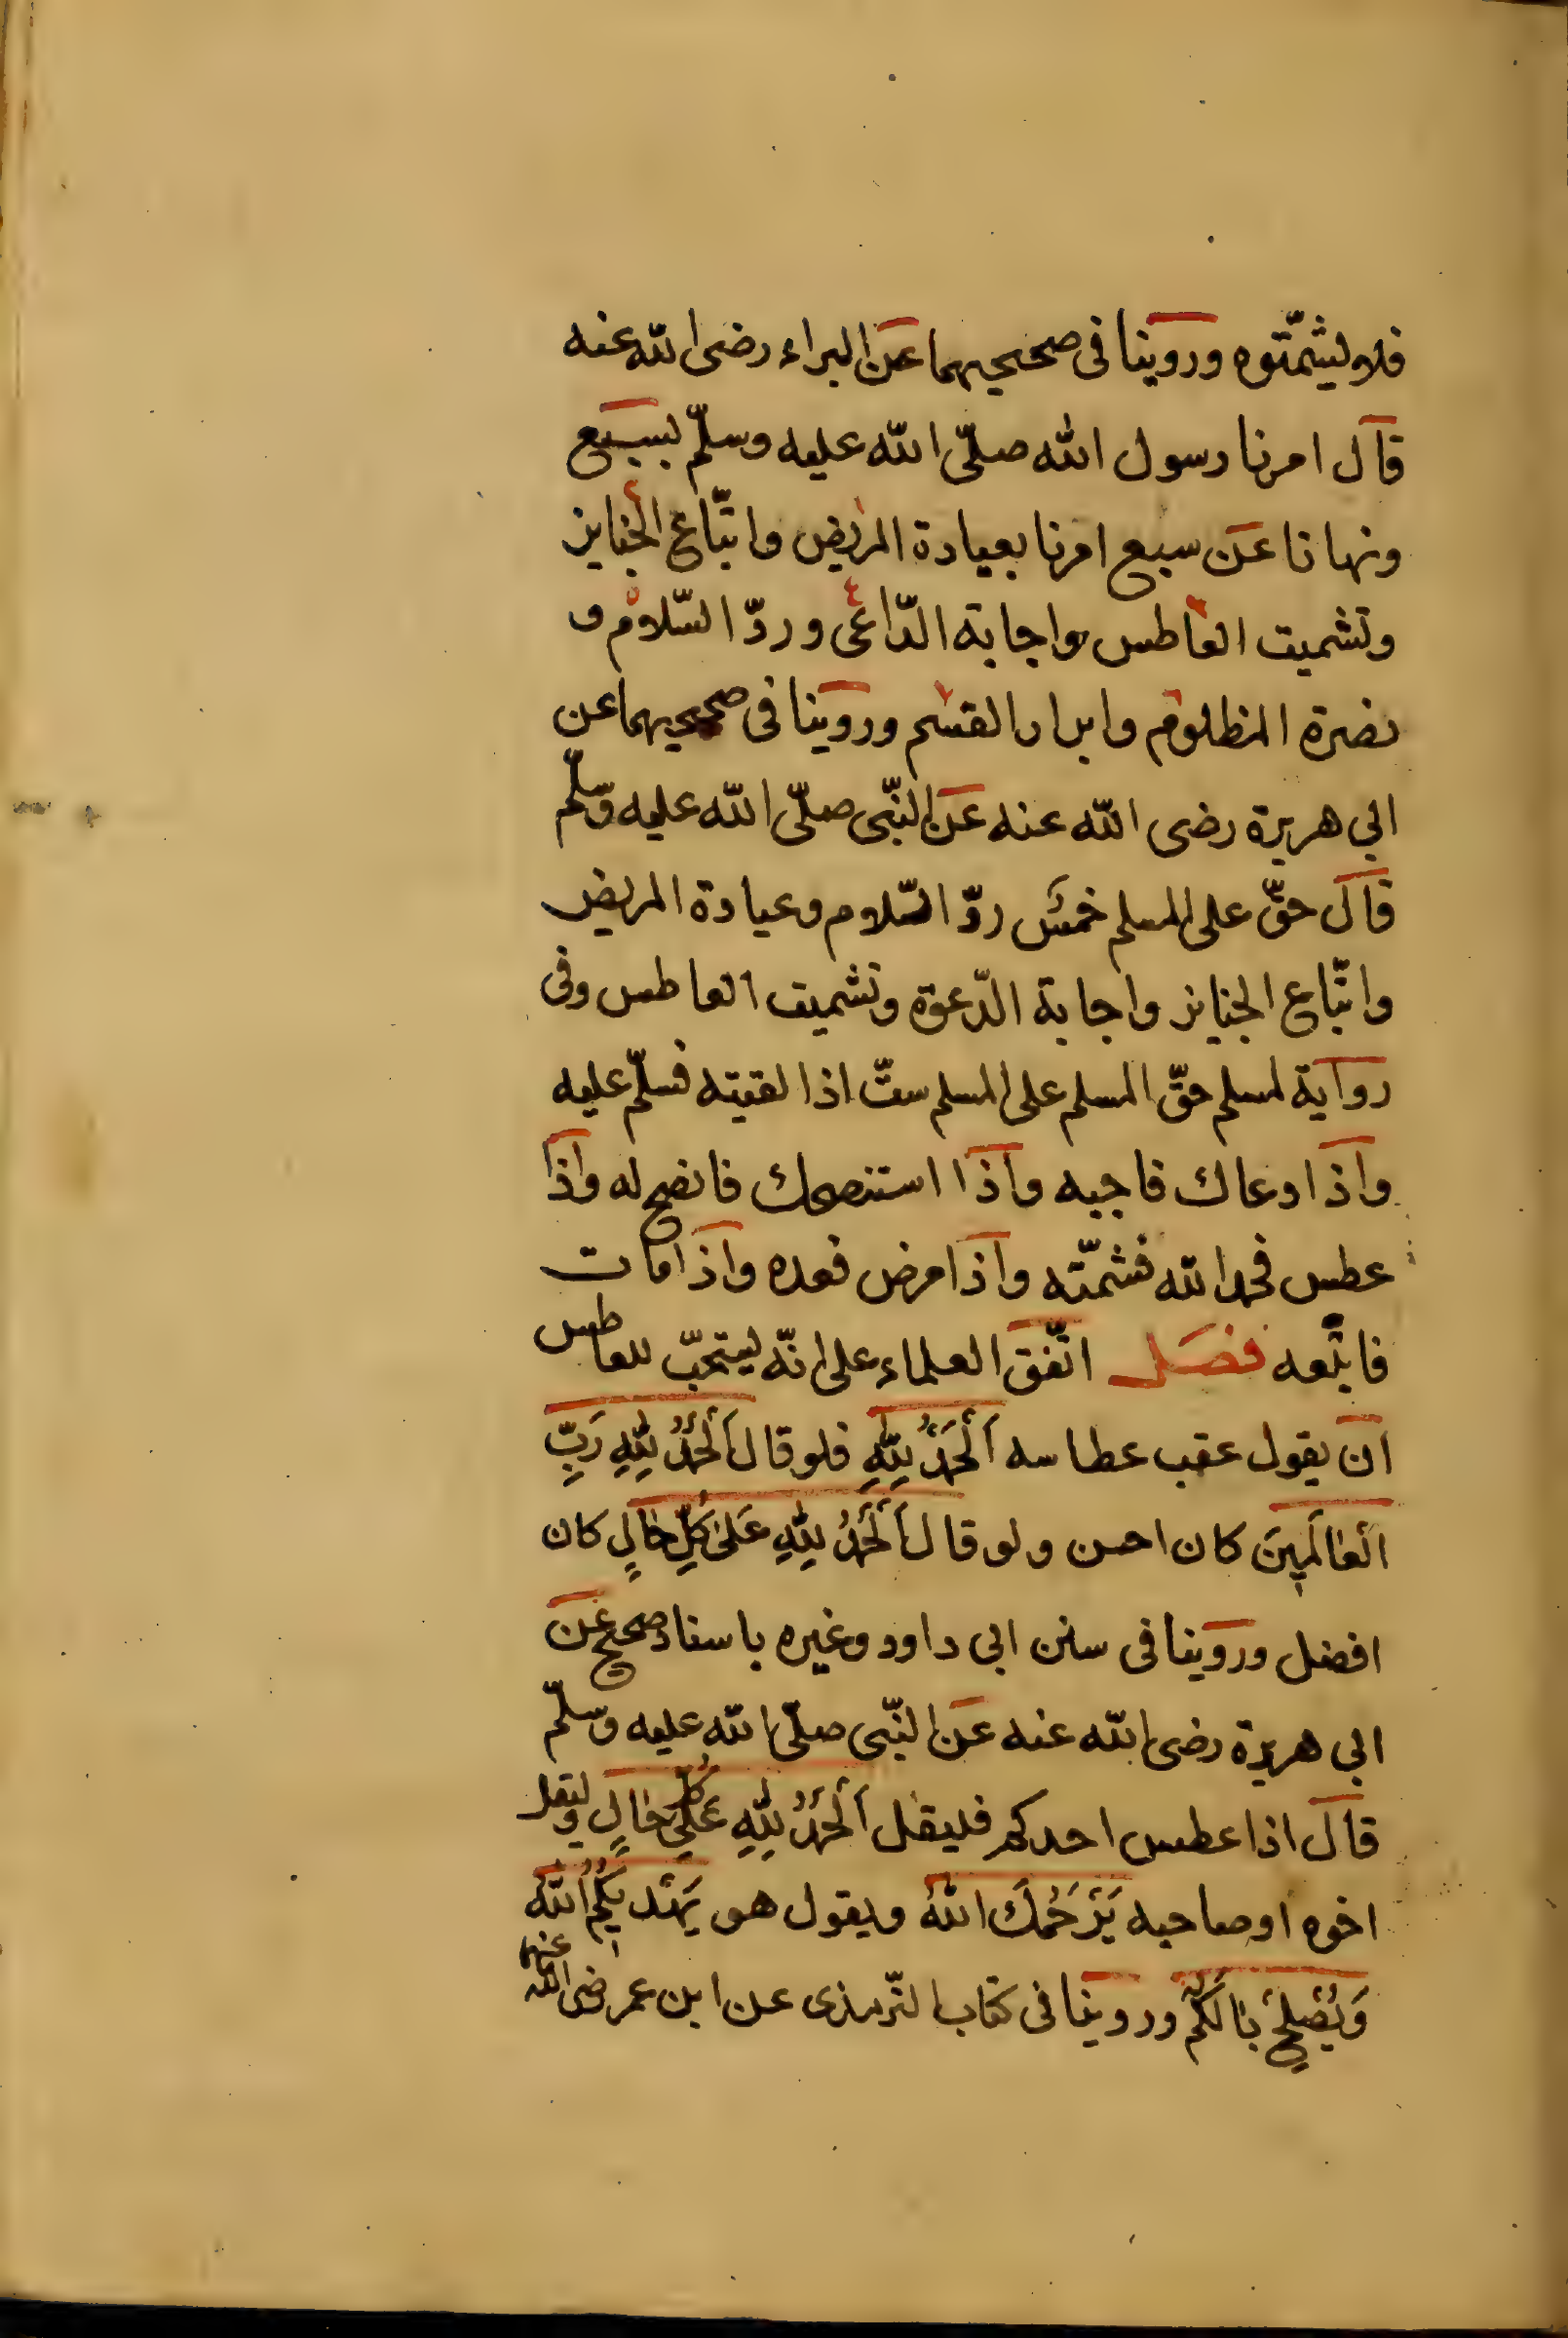 فلا يشمّتوه وروينا فى صحيحيهما عن البراء رضى الله عنه
قال امرنا رسول الله صلّى الله عليه وسلّم بسبع
ونهانا عن سبع امرنا بعيادة المريض واتّباع الجنايز
وتشميت العاطس واجابة الدّاعى وردّ السّلام و
نصرة المظلوم وابرار القسم وروينا فى صحيحيهما عن
ابي هريرة رضى الله عنه عن النّبى صلّى الله عليه وسلّم
قال حقّ على المسلم خمس ردّ السّلام وعيادة المريض
واتّباع الجنايز واجابة الدّعوة وتشميت العاطس وفى
رواية لمسلم حقّ المسلم على المسلم ستّ اذا لقيته فسلّم عليه
واذا دعاك فاجبه واذا استنصحك فانصح له واذا
عطس فحمد الله فشمّته واذا مرض فعده واذا مات
فاتّبعه فصل اتّفق العلماء على انّه يستحبّ للعاطس
ان يقول عقب عطاسه اَلْحَمْدُ لِلّٰهِ فلو قال اَلْحَمْدُ لِلّٰهِ رَبِّ
الْعَالَمِينَ كان احسن ولو قال اَلْحَمْدُ لِلّٰهِ عَلىٰ كُلِّ حَالٍ كان
افضل وروينا فى سنن ابى داود وغيره باسناد صحيح عن
ابي هريرة رضى الله عنه عن النّبى صلّى الله عليه وسلّم
قال اذا عطس احدكم فليقل اَلْحَمْدُ لِلّٰهِ عَلىٰ كُلِّ حَالٍ وليقل
اخوه او صاحبه يَرْحَمُكَ اللّٰهُ ويقول هو يَهْدِيكُمُ اللّٰهُ
وَيُصْلِحُ بَالَكُمْ وروينا فى كتاب التّرمذى عن ابن عمر رضى الله عنهما